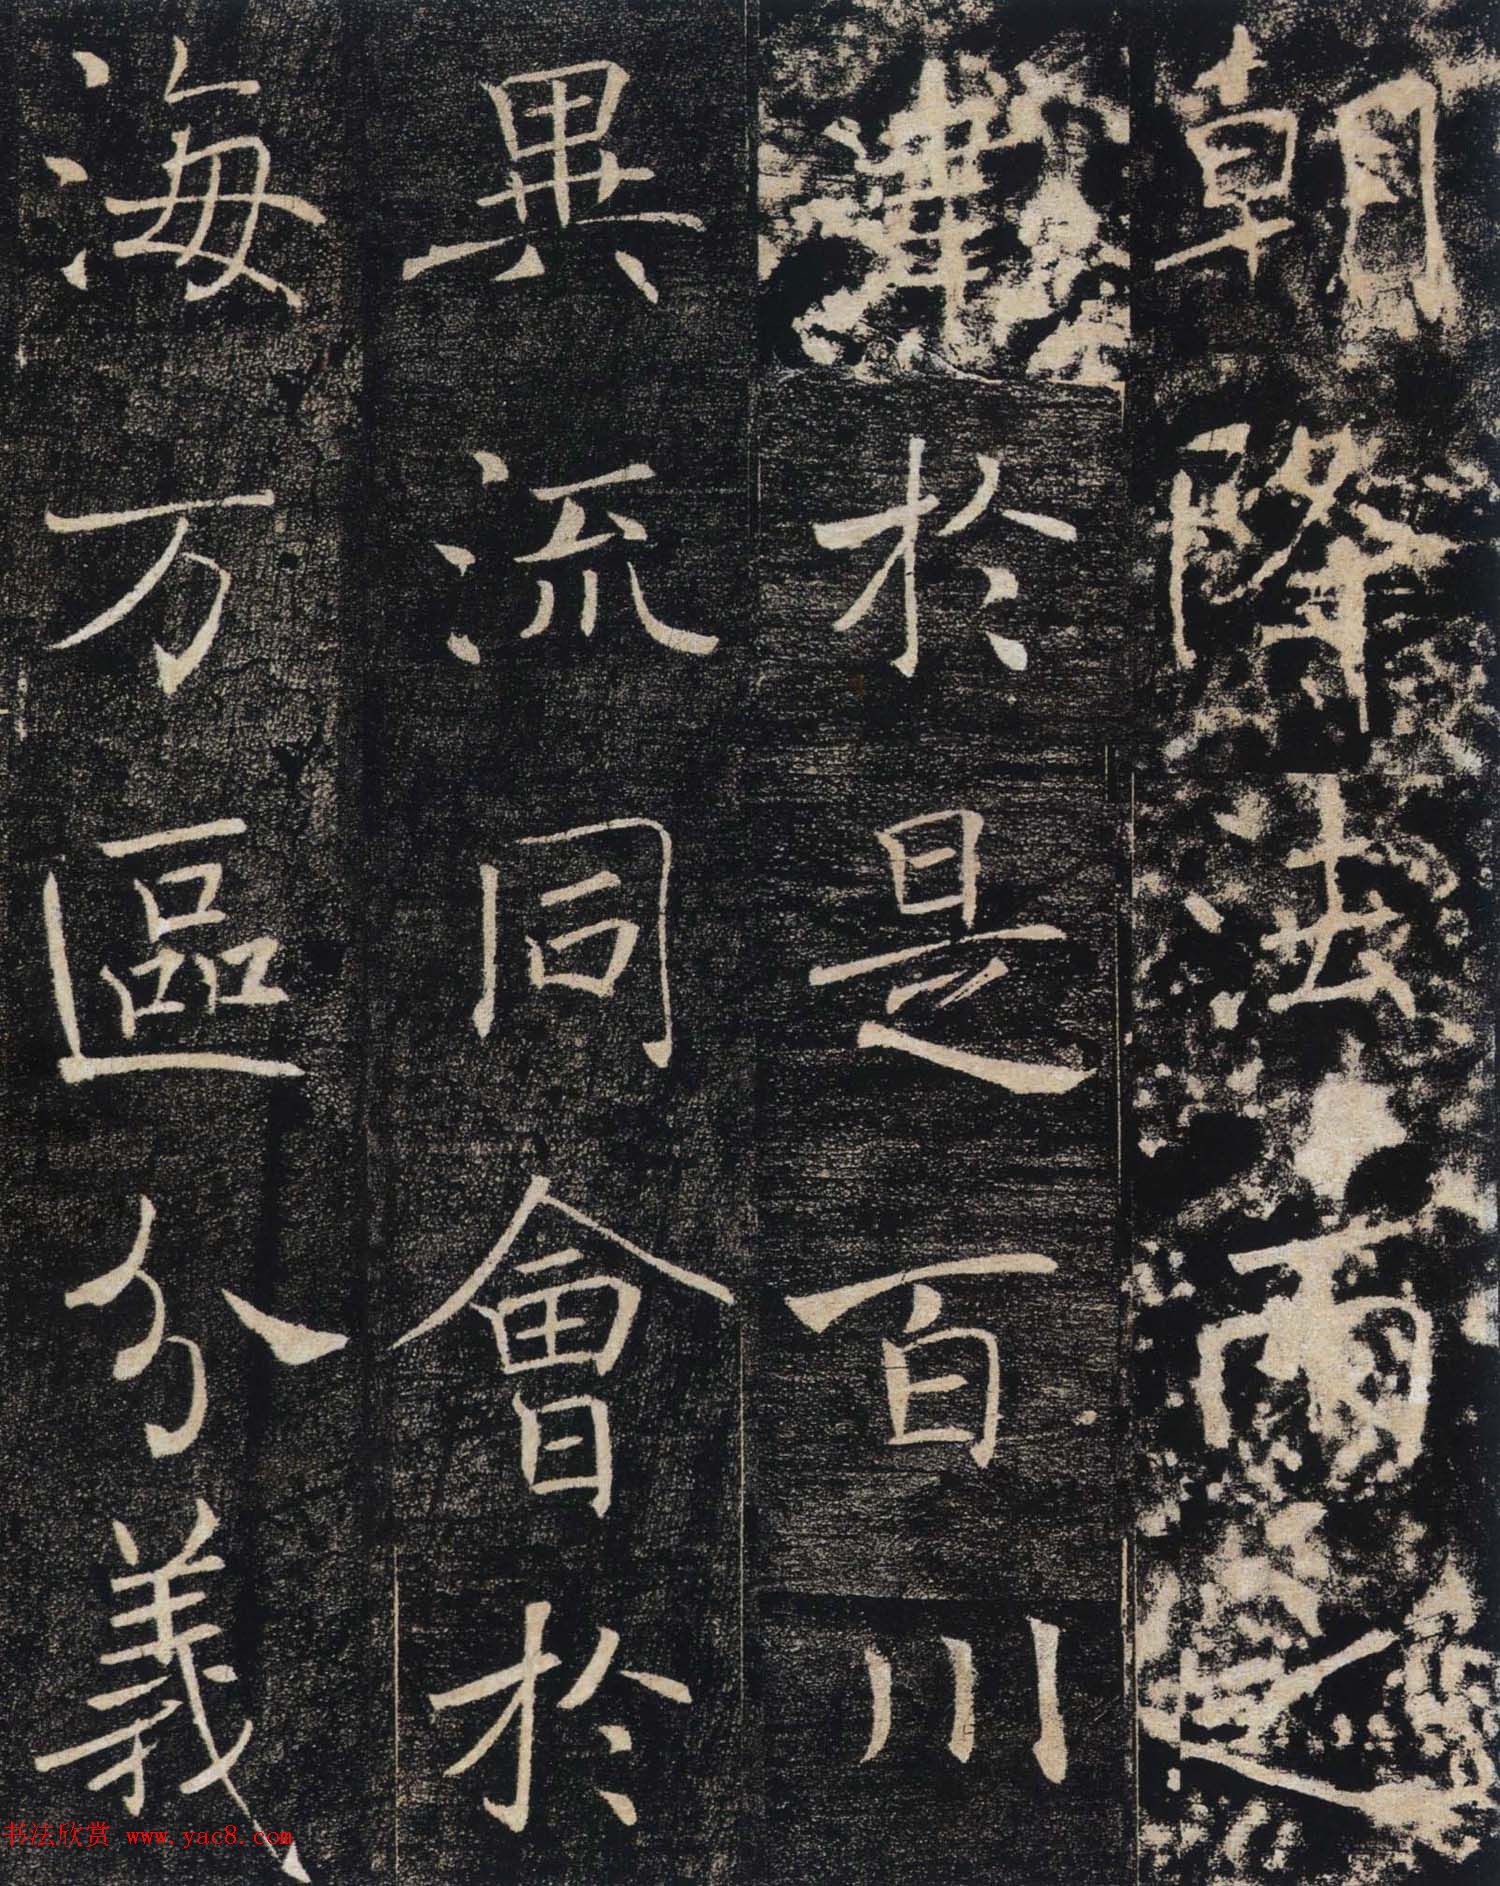 朝降法雨
於是百川
異流同會於
海万區分義
书法欣赏 www.yac8.com